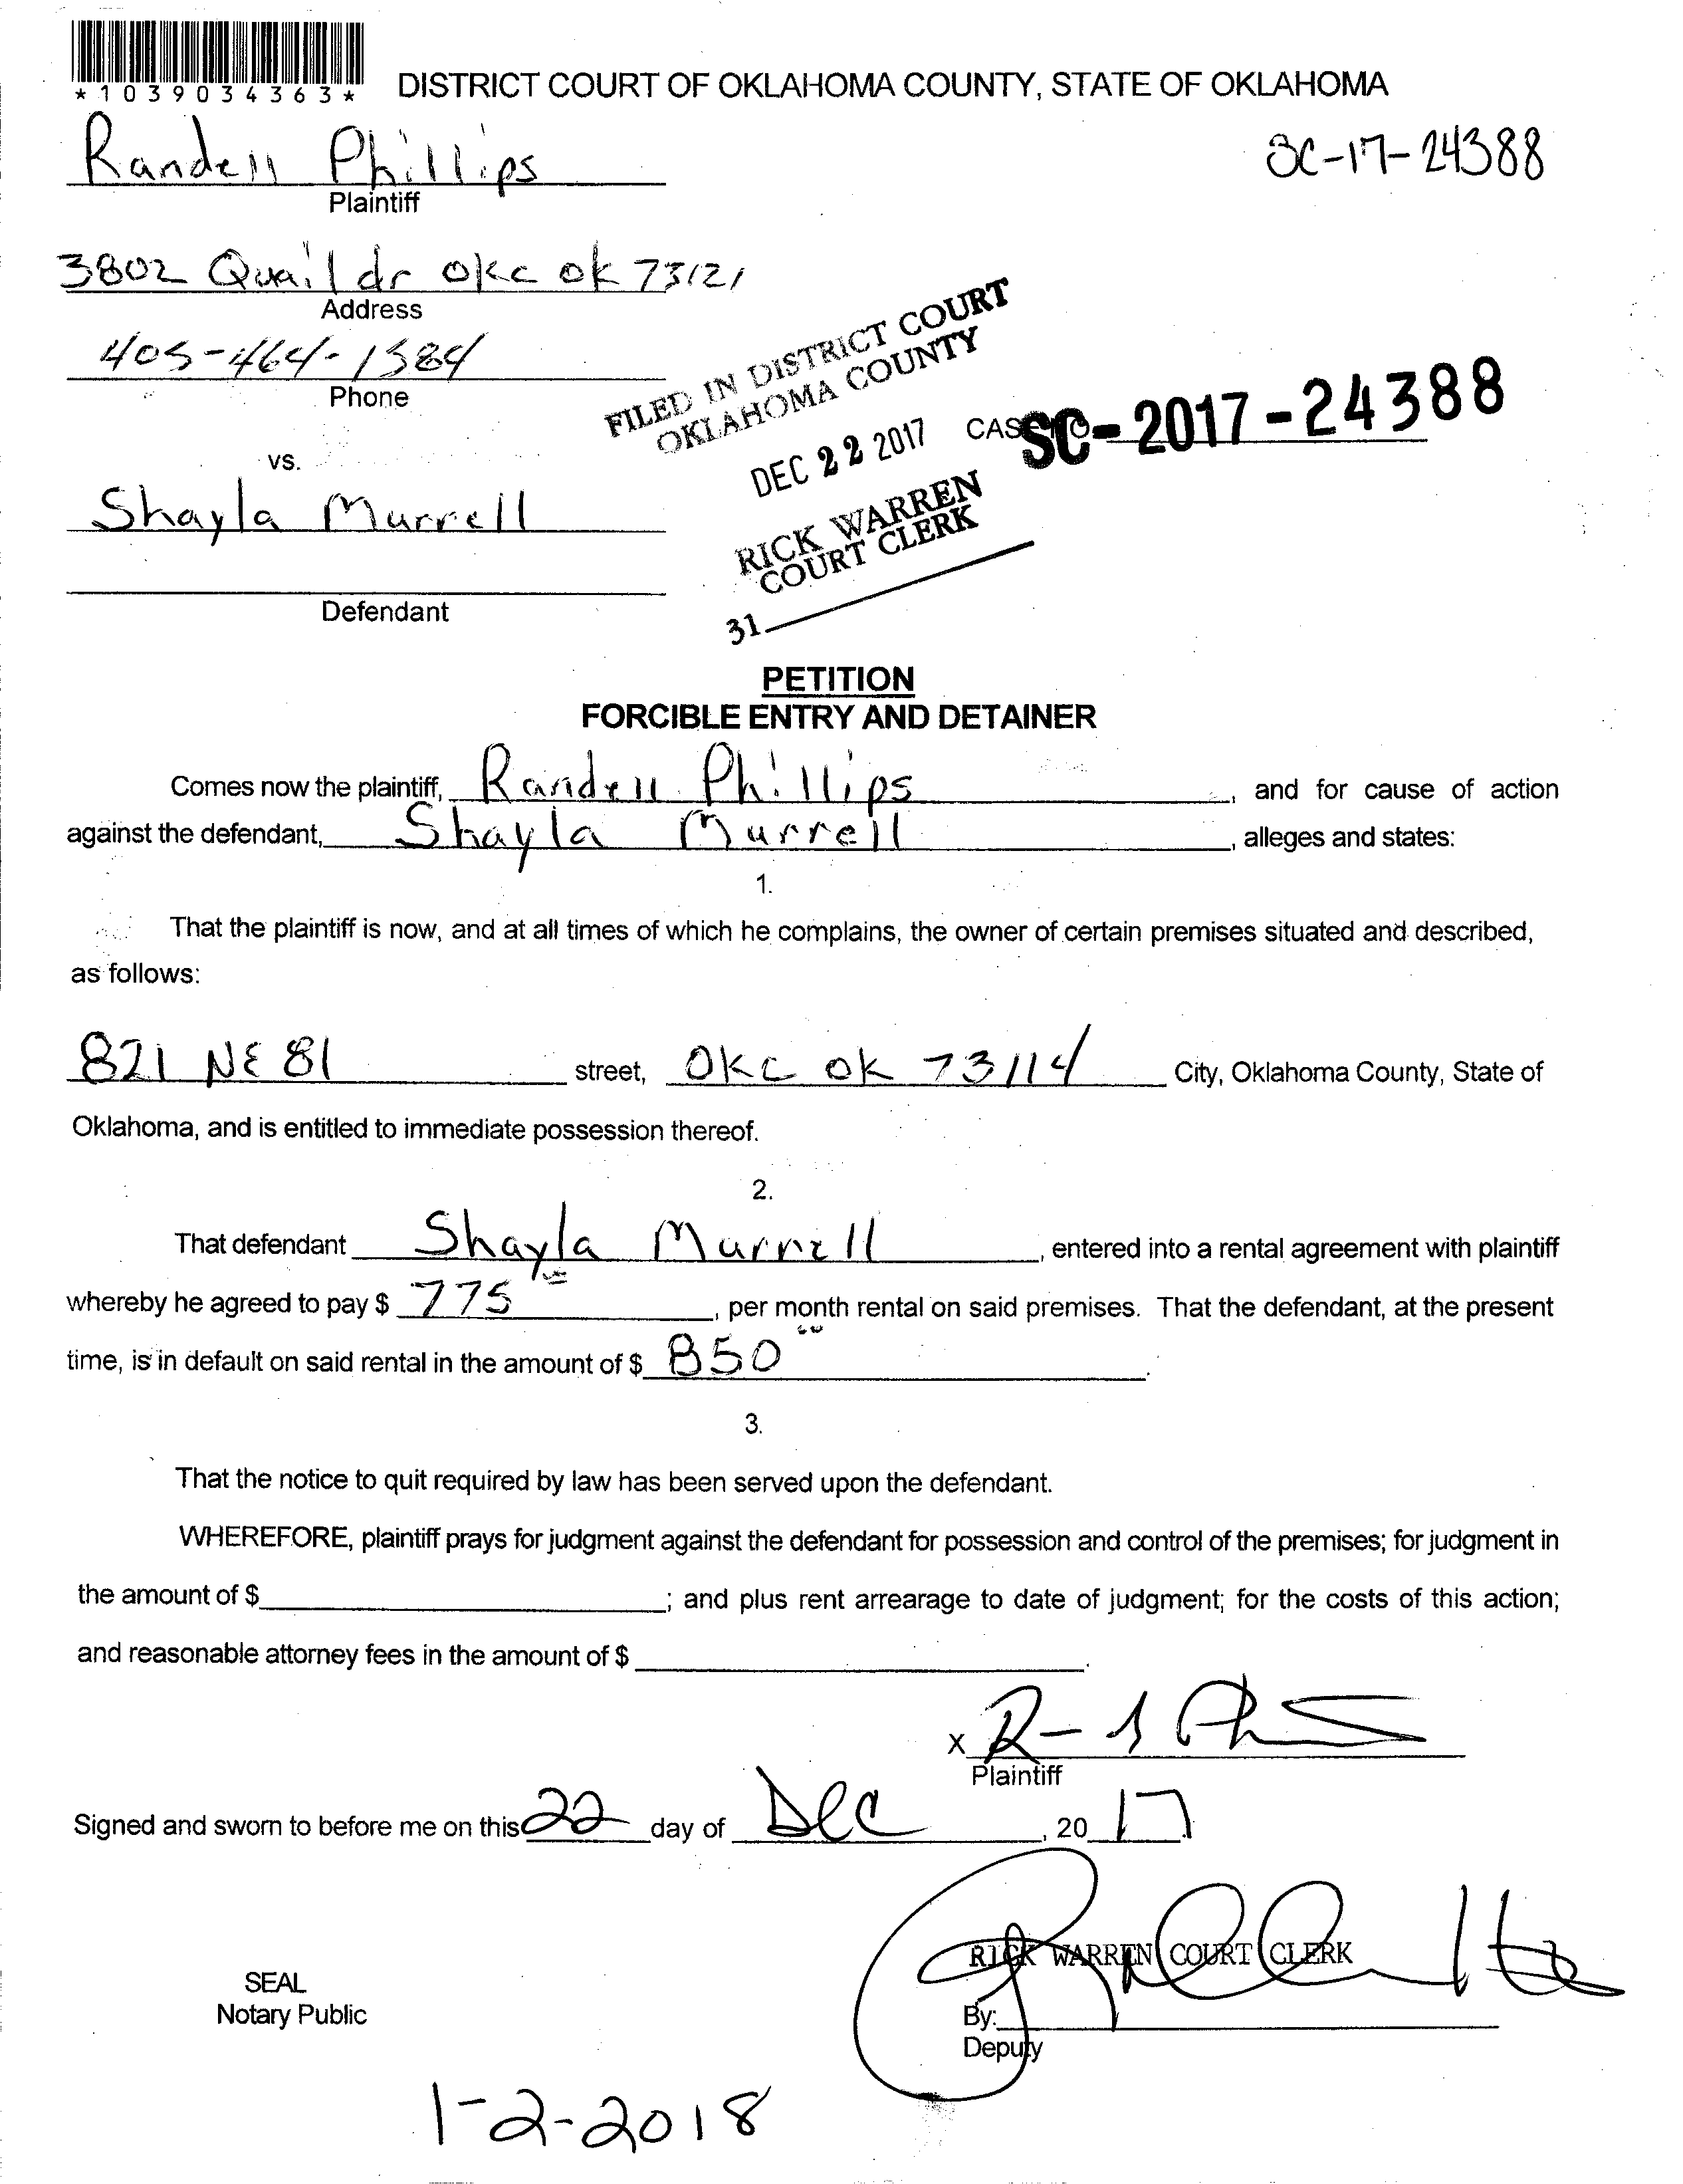 *1039034363*
DISTRICT COURT OF OKLAHOMA COUNTY, STATE OF OKLAHOMA
Randell Phillips
SC-17-24388
Plaintiff
3802 Quail dr okc ok 73121
Address
405-464-1584
Phone
FILED IN DISTRICT COURT
OKLAHOMA COUNTY
DEC 22 2017
CASE NO. SC-2017-24388
vs.
RICK WARREN
COURT CLERK
31
Shayla Murrell
Defendant
PETITION
FORCIBLE ENTRY AND DETAINER
Comes now the plaintiff, Randell Phillips, and for cause of action
against the defendant, Shayla Murrell, alleges and states:
1.
That the plaintiff is now, and at all times of which he complains, the owner of certain premises situated and described,
as follows:
821 NE 81 street, OKC OK 73114 City, Oklahoma County, State of
Oklahoma, and is entitled to immediate possession thereof.
2.
That defendant Shayla Murrell, entered into a rental agreement with plaintiff
whereby he agreed to pay $ 775.00, per month rental on said premises. That the defendant, at the present
time, is in default on said rental in the amount of $ 850.00.
3.
That the notice to quit required by law has been served upon the defendant.
WHEREFORE, plaintiff prays for judgment against the defendant for possession and control of the premises; for judgment in
the amount of $; and plus rent arrearage to date of judgment; for the costs of this action;
and reasonable attorney fees in the amount of $.
X
Plaintiff
Signed and sworn to before me on this 22 day of Dec, 2017.
RICK WARREN COURT CLERK
SEAL
Notary Public
By:
Deputy
1-2-2018